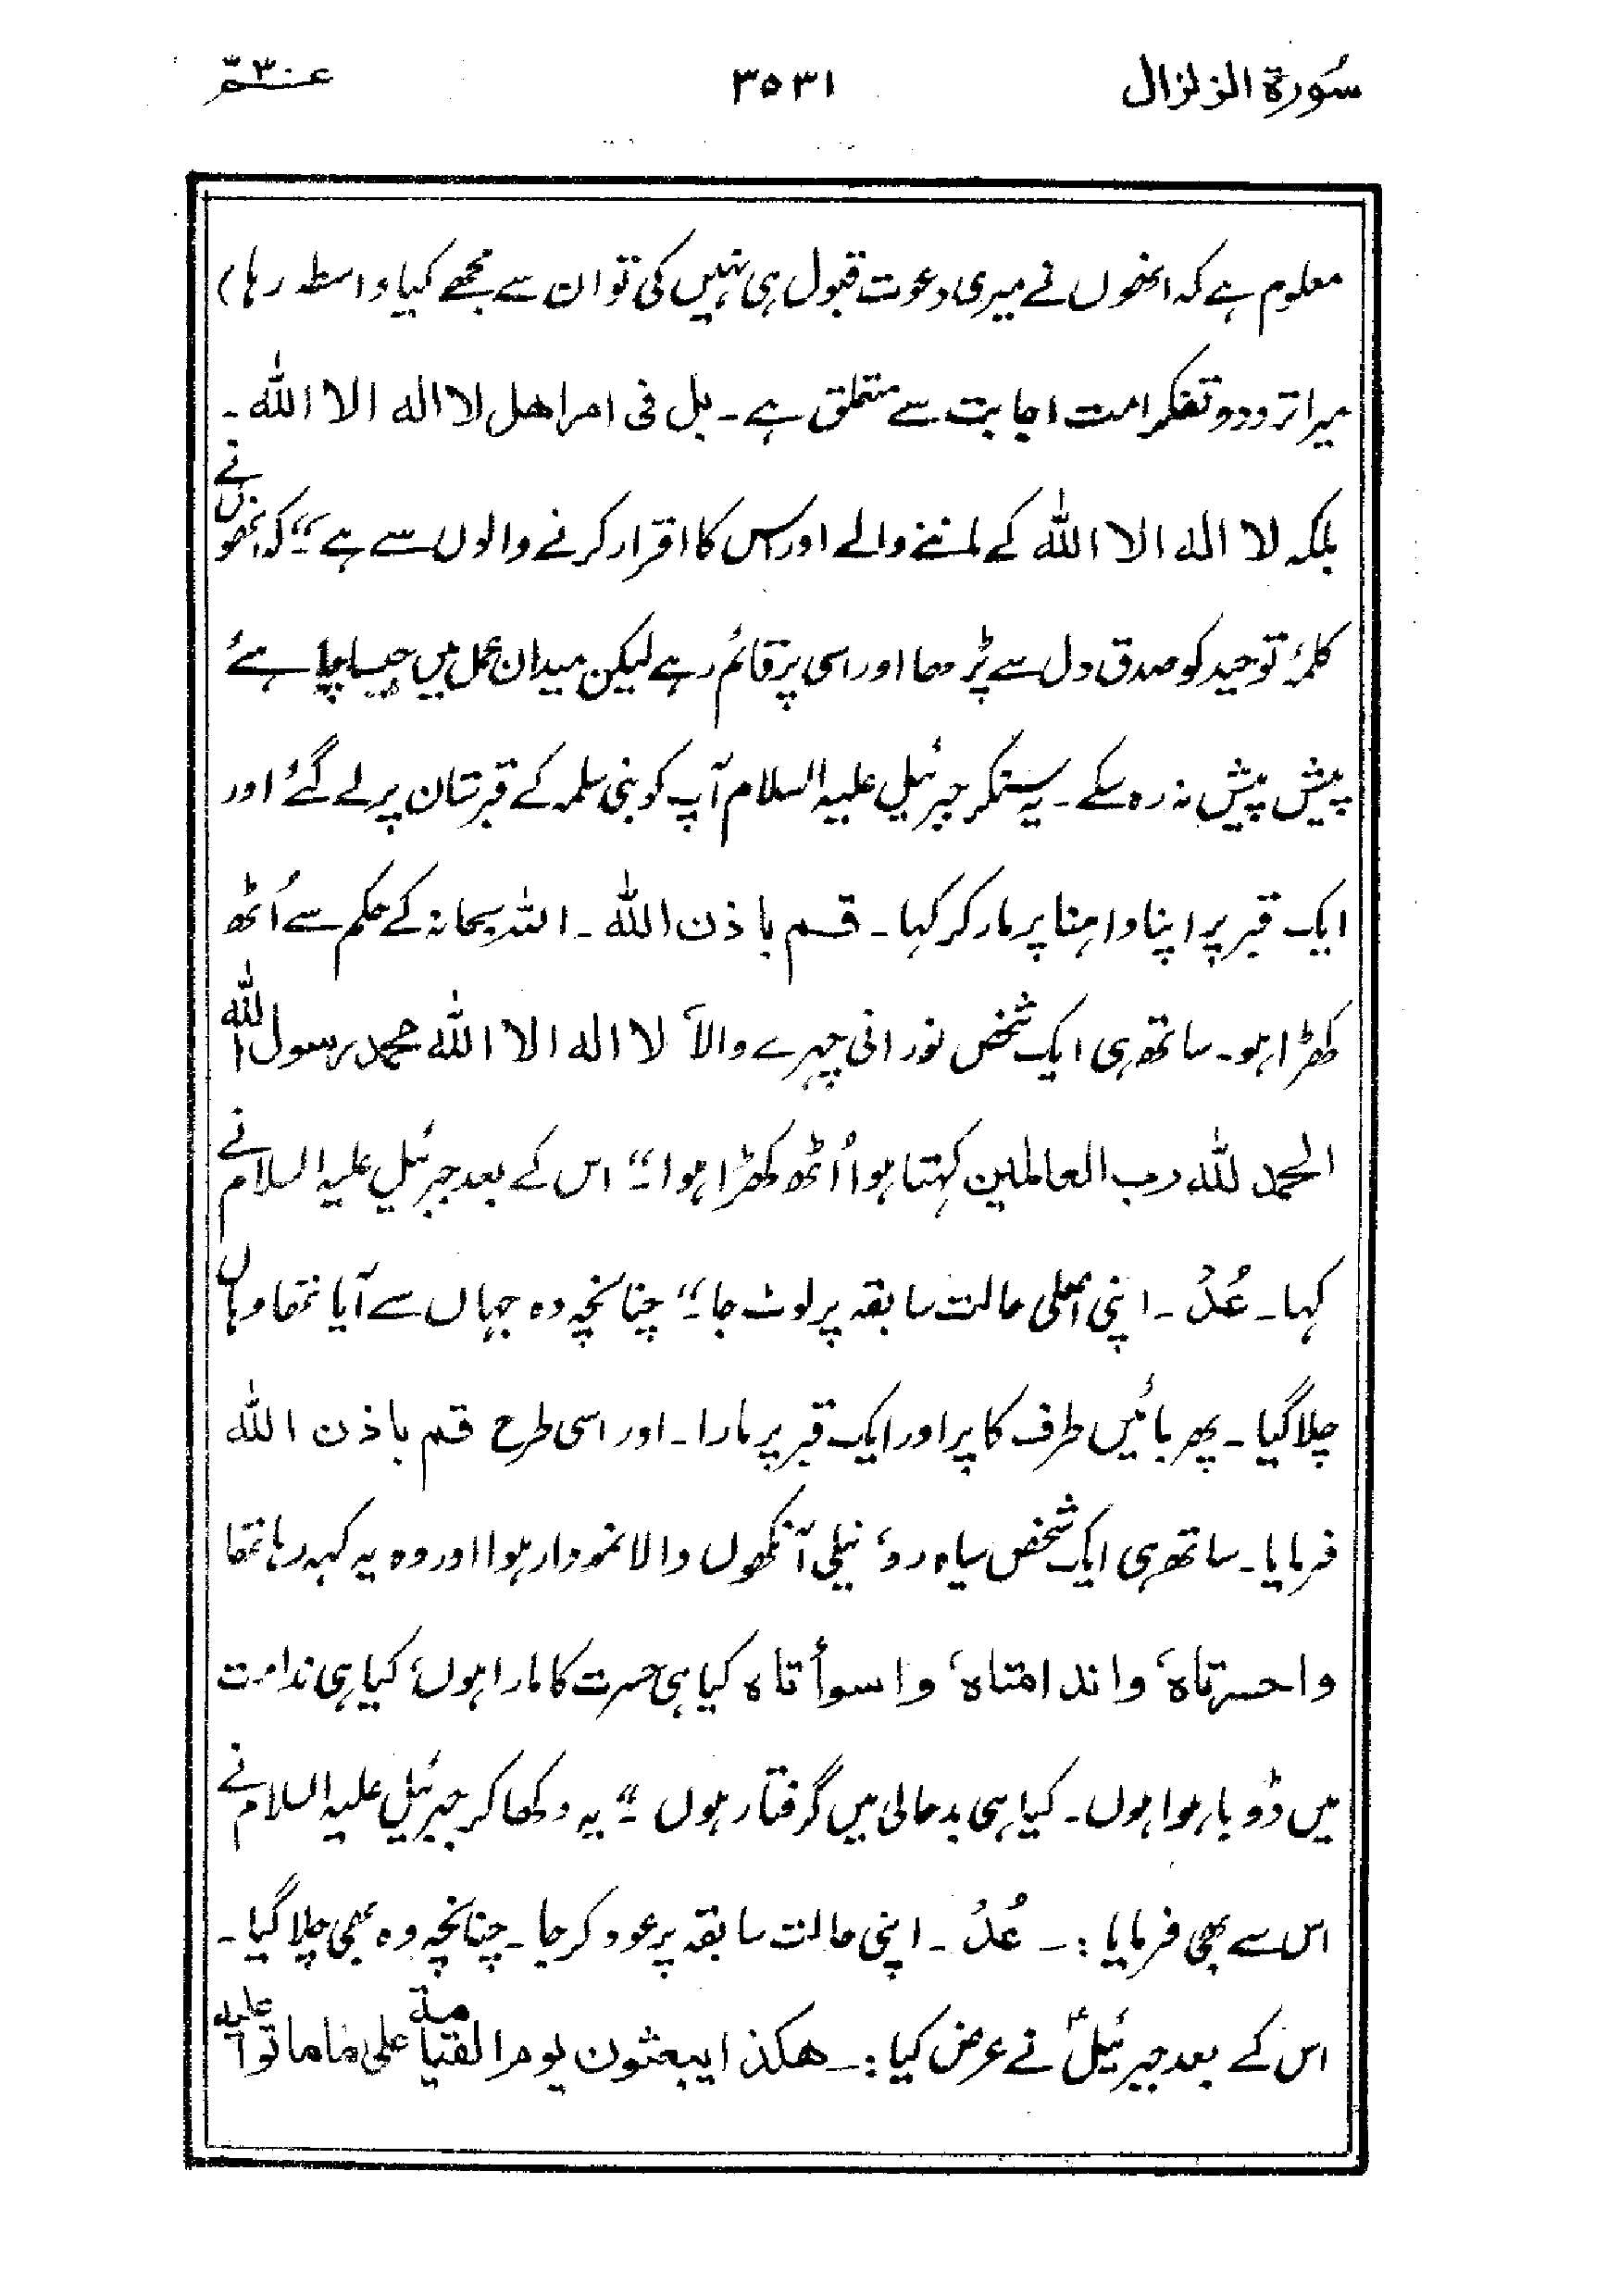 سُورة الزلزال ۳۵۳۱ عـــم ۳۰
معلوم ہے کہ انھوں نے میری دعوت قبول ہی نہیں کی تو ان سے مجھے کیا واسطہ رہا)
میرا تردد و تفکر امت اجابت سے متعلق ہے۔ بل فی امر اهل لا اله الا الله۔
بلکہ لا اله الا الله کے ماننے والے اور اس کا اقرار کرنے والوں سے ہے“ کہ انھوں نے
کلمۂ توحید کو صدق دل سے پڑھا اور اسی پر قائم رہے لیکن میدان عمل میں جیسا چاہئے
پیش پیش نہ رہ سکے۔ یہ سنکر جبرئیل علیہ السلام آپ کو بنی سلمہ کے قبرستان پر لے گئے اور
ایک قبر پر اپنا داہنا پر مار کر کہا۔ قم باذن الله۔ اللہ سبحانہ کے حکم سے اُٹھ
کھڑا ہو۔ ساتھ ہی ایک شخص نورانی چہرے والا ”لا اله الا الله محمد رسول الله
الحمد لله رب العالمین کہتا ہوا اُٹھ کھڑا ہوا۔“ اس کے بعد جبرئیل علیہ السلام نے
کہا۔ عُدْ۔ اپنی اصلی حالت سابقہ پر لوٹ جا۔“ چنانچہ وہ جہاں سے آیا تھا وہاں
چلا گیا۔ پھر بائیں طرف کا پر اور ایک قبر پر مارا۔ اور اسی طرح قم باذن الله
فرمایا۔ ساتھ ہی ایک شخص سیاہ رو، نیلی آنکھوں والا نمودار ہوا اور وہ یہ کہہ رہا تھا
واحسرتاه، واندامتاه، واسوأتاه کیا ہی حسرت کا مارا ہوں، کیا ہی ندامت
میں ڈوبا ہوا ہوں۔ کیا ہی بدحالی میں گرفتار ہوں۔“ یہ دکھا کر جبرئیل علیہ السلام نے
اس سے بھی فرمایا :۔ عُدْ۔ اپنی حالت سابقہ پر عود کر جا۔ چنانچہ وہ بھی چلا گیا۔
اس کے بعد جبرئیلؑ نے عرض کیا :۔ هكذا يبعثون يوم القيامة على ما ماتوا عليه